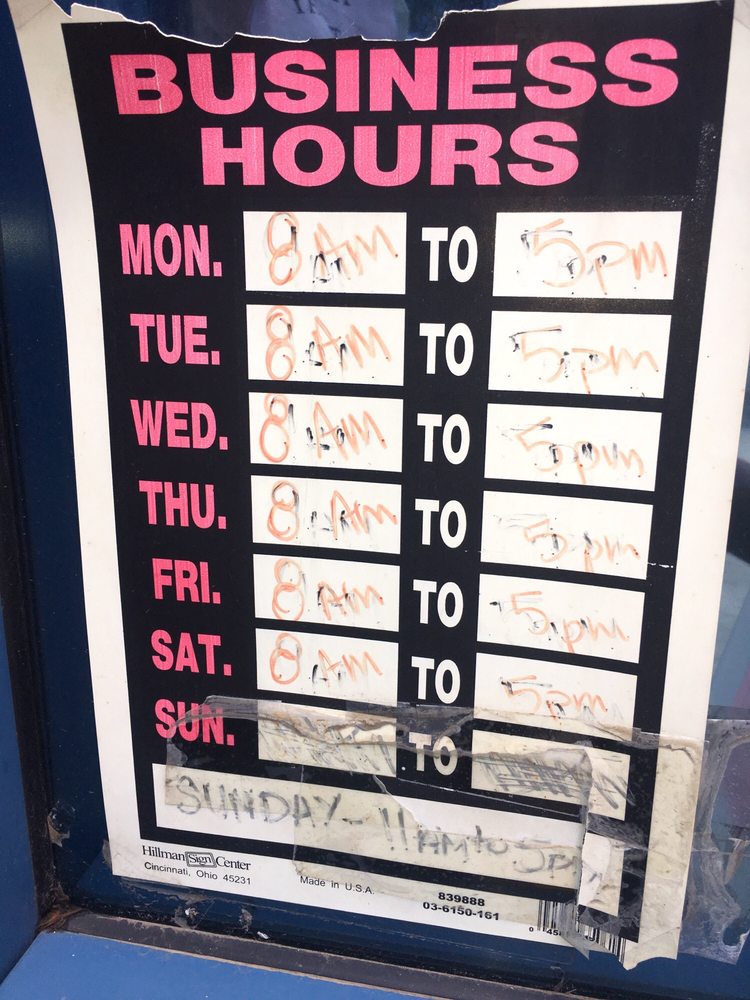 BUSINESS
HOURS
MON. 8 AM TO 5pm
TUE. 8 AM TO 5pm
WED. 8 AM TO 5pm
THU. 8 AM TO 5pm
FRI. 8 AM TO 5pm
SAT. 8 AM TO 5pm
SUN. TO
SUNDAY - 11 AM to 5PM
Hillman Sign Center
Cincinnati, Ohio 45231
Made in U.S.A.
839888
03-6150-161